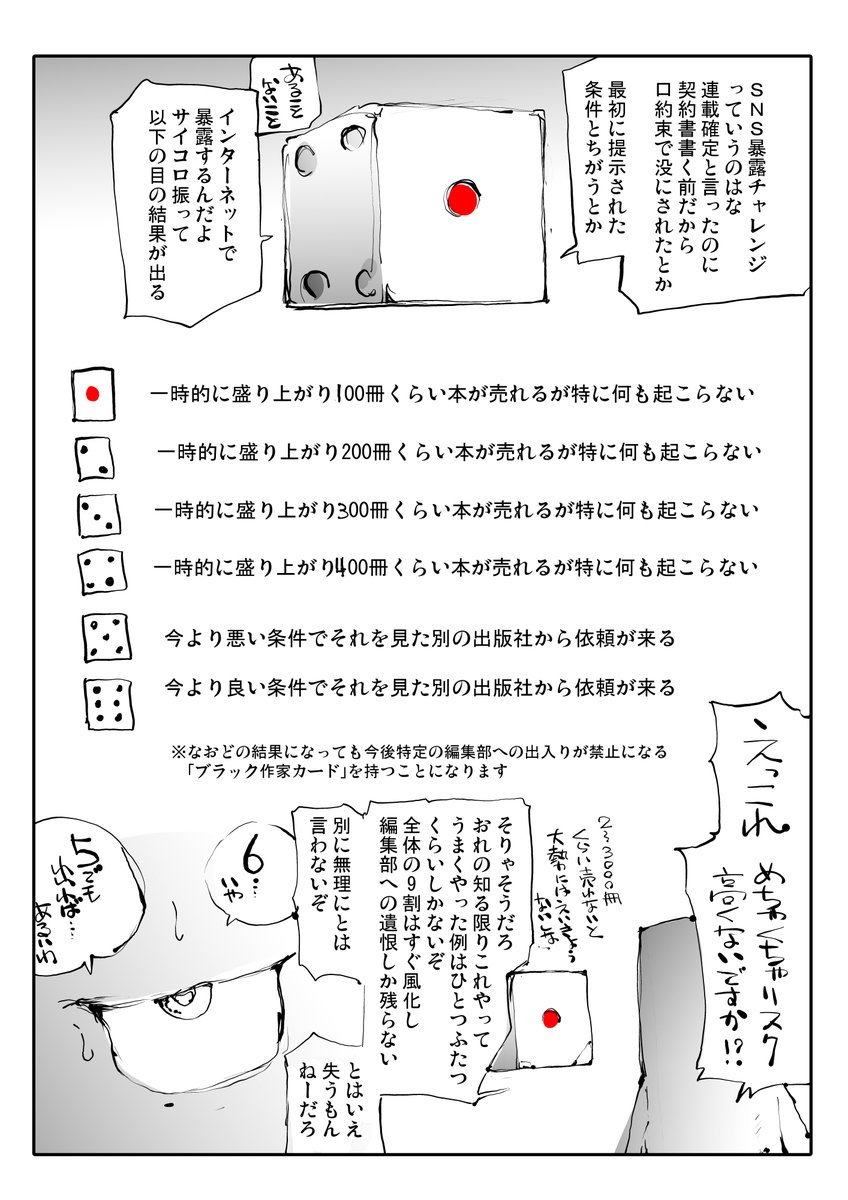 SNS暴露チャレンジ
っていうのはな
連載確定と言ったのに
契約書書く前だから
口約束で没にされたとか
最初に提示された
条件とちがうとか
あること
ないこと
インターネットで
暴露するんだよ
サイコロ振って
以下の目の結果が出る
一時的に盛り上がり100冊くらい本が売れるが特に何も起こらない
一時的に盛り上がり200冊くらい本が売れるが特に何も起こらない
一時的に盛り上がり300冊くらい本が売れるが特に何も起こらない
一時的に盛り上がり400冊くらい本が売れるが特に何も起こらない
今より悪い条件でそれを見た別の出版社から依頼が来る
今より良い条件でそれを見た別の出版社から依頼が来る
※なおどの結果になっても今後特定の編集部への出入りが禁止になる
「ブラック作家カード」を持つことになります
えっこれ
めちゃくちゃリスク
高くないですか!?
2〜3000冊
くらい売れないと
大勢にはえいきょう
ないしな
そりゃそうだろ
おれの知る限りこれやって
うまくやった例はひとつふたつ
くらいしかないぞ
全体の9割はすぐ風化し
編集部への遺恨しか残らない
別に無理にとは
言わないぞ
とはいえ
失うもん
ねーだろ
6
いや…
5でも
出れば…
あるいわ